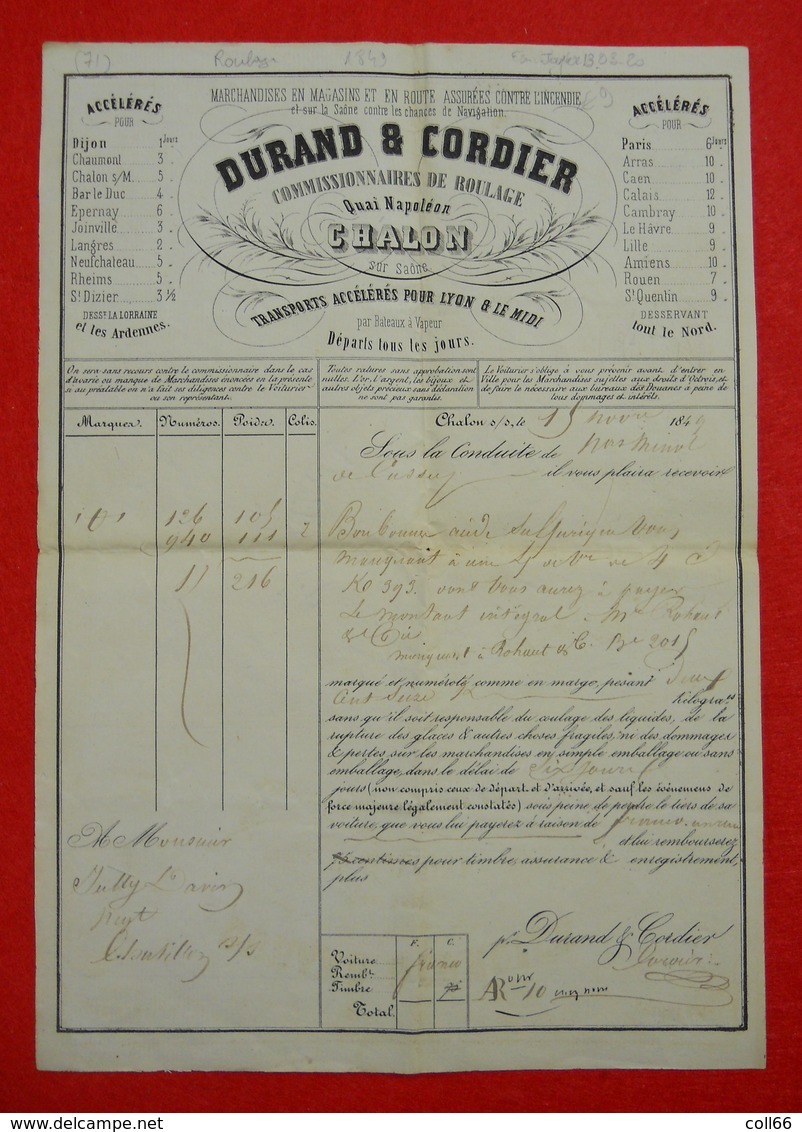 (71)
1849
MARCHANDISES EN MAGASINS ET EN ROUTE ASSURÉES CONTRE L'INCENDIE
et sur la Saône contre les chances de Navigation.
DURAND & CORDIER
COMMISSIONNAIRES DE ROULAGE
Quai Napoléon
CHALON
sur Saône
TRANSPORTS ACCÉLÉRÉS POUR LYON & LE MIDI
par Bateaux à Vapeur
Départs tous les jours.
ACCÉLÉRÉS
POUR
Dijon 1 Jours
Chaumont 3 "
Chalon s/M. 5 "
Bar le Duc 4 "
Epernay 6 "
Joinville 3 "
Langres 2 "
Neufchateau 5 "
Rheims 5 "
St Dizier 3 ½
DESSt LA LORRAINE
et les Ardennes.
ACCÉLÉRÉS
POUR
Paris 6 Jours
Arras 10 "
Caen 10 "
Calais 12 "
Cambray 10 "
Le Hâvre 9 "
Lille 9 "
Amiens 10 "
Rouen 7 "
St Quentin 9 "
DESSERVANT
tout le Nord.
On sera sans recours contre le commissionnaire dans le cas
d'avarie ou manque de Marchandises énoncées en la présente
si au préalable on n'a fait ses diligences contre le Voiturier
ou son représentant.
Toutes ratures sans approbation sont
nulles. L'or, l'argent, les bijoux et
autres objets précieux sans déclaration
ne sont pas garantis.
Le Voiturier s'oblige à vous prévenir avant d'entrer en
Ville pour les Marchandises sujettes aux droits d'Octrois, et
de faire le nécessaire aux bureaux des Douanes à peine de
tous dommages et intérêts.
Marques. Numéros. Poids. Colis.
126 105
940 111 2
216
Chalon s/s, le 15 novre 1849
Sous la Conduite de
il vous plaira recevoir
Bonbonnes acide sulfurique
manquant à
Ko 393. vous aurez à payer
Le montant intégral Mr Rohaut
& Cie
manquant à Rohaut & C.
marqué et numéroté comme en marge, pesant Deux
Cent Seize Kilogra.es
sans qu'il soit responsable du coulage des liquides, de la
rupture des glaces & autres choses fragiles, ni des dommages
& pertes, sur les marchandises en simple emballage ou sans
emballage, dans le délai de Six jours
jours (non compris ceux de départ et d'arrivée, et sauf les événemens de
force majeure légalement constatés) sous peine de perdre le tiers de sa
voiture, que vous lui payerez à raison de franco
et lui rembourserez
75 centimes pour timbre, assurance & enregistrement,
plus
A Monsieur
Chatillon s/s
pr Durand & Cordier
F. C.
Voiture franco
Rembt
Timbre 75
Total
10
coll66